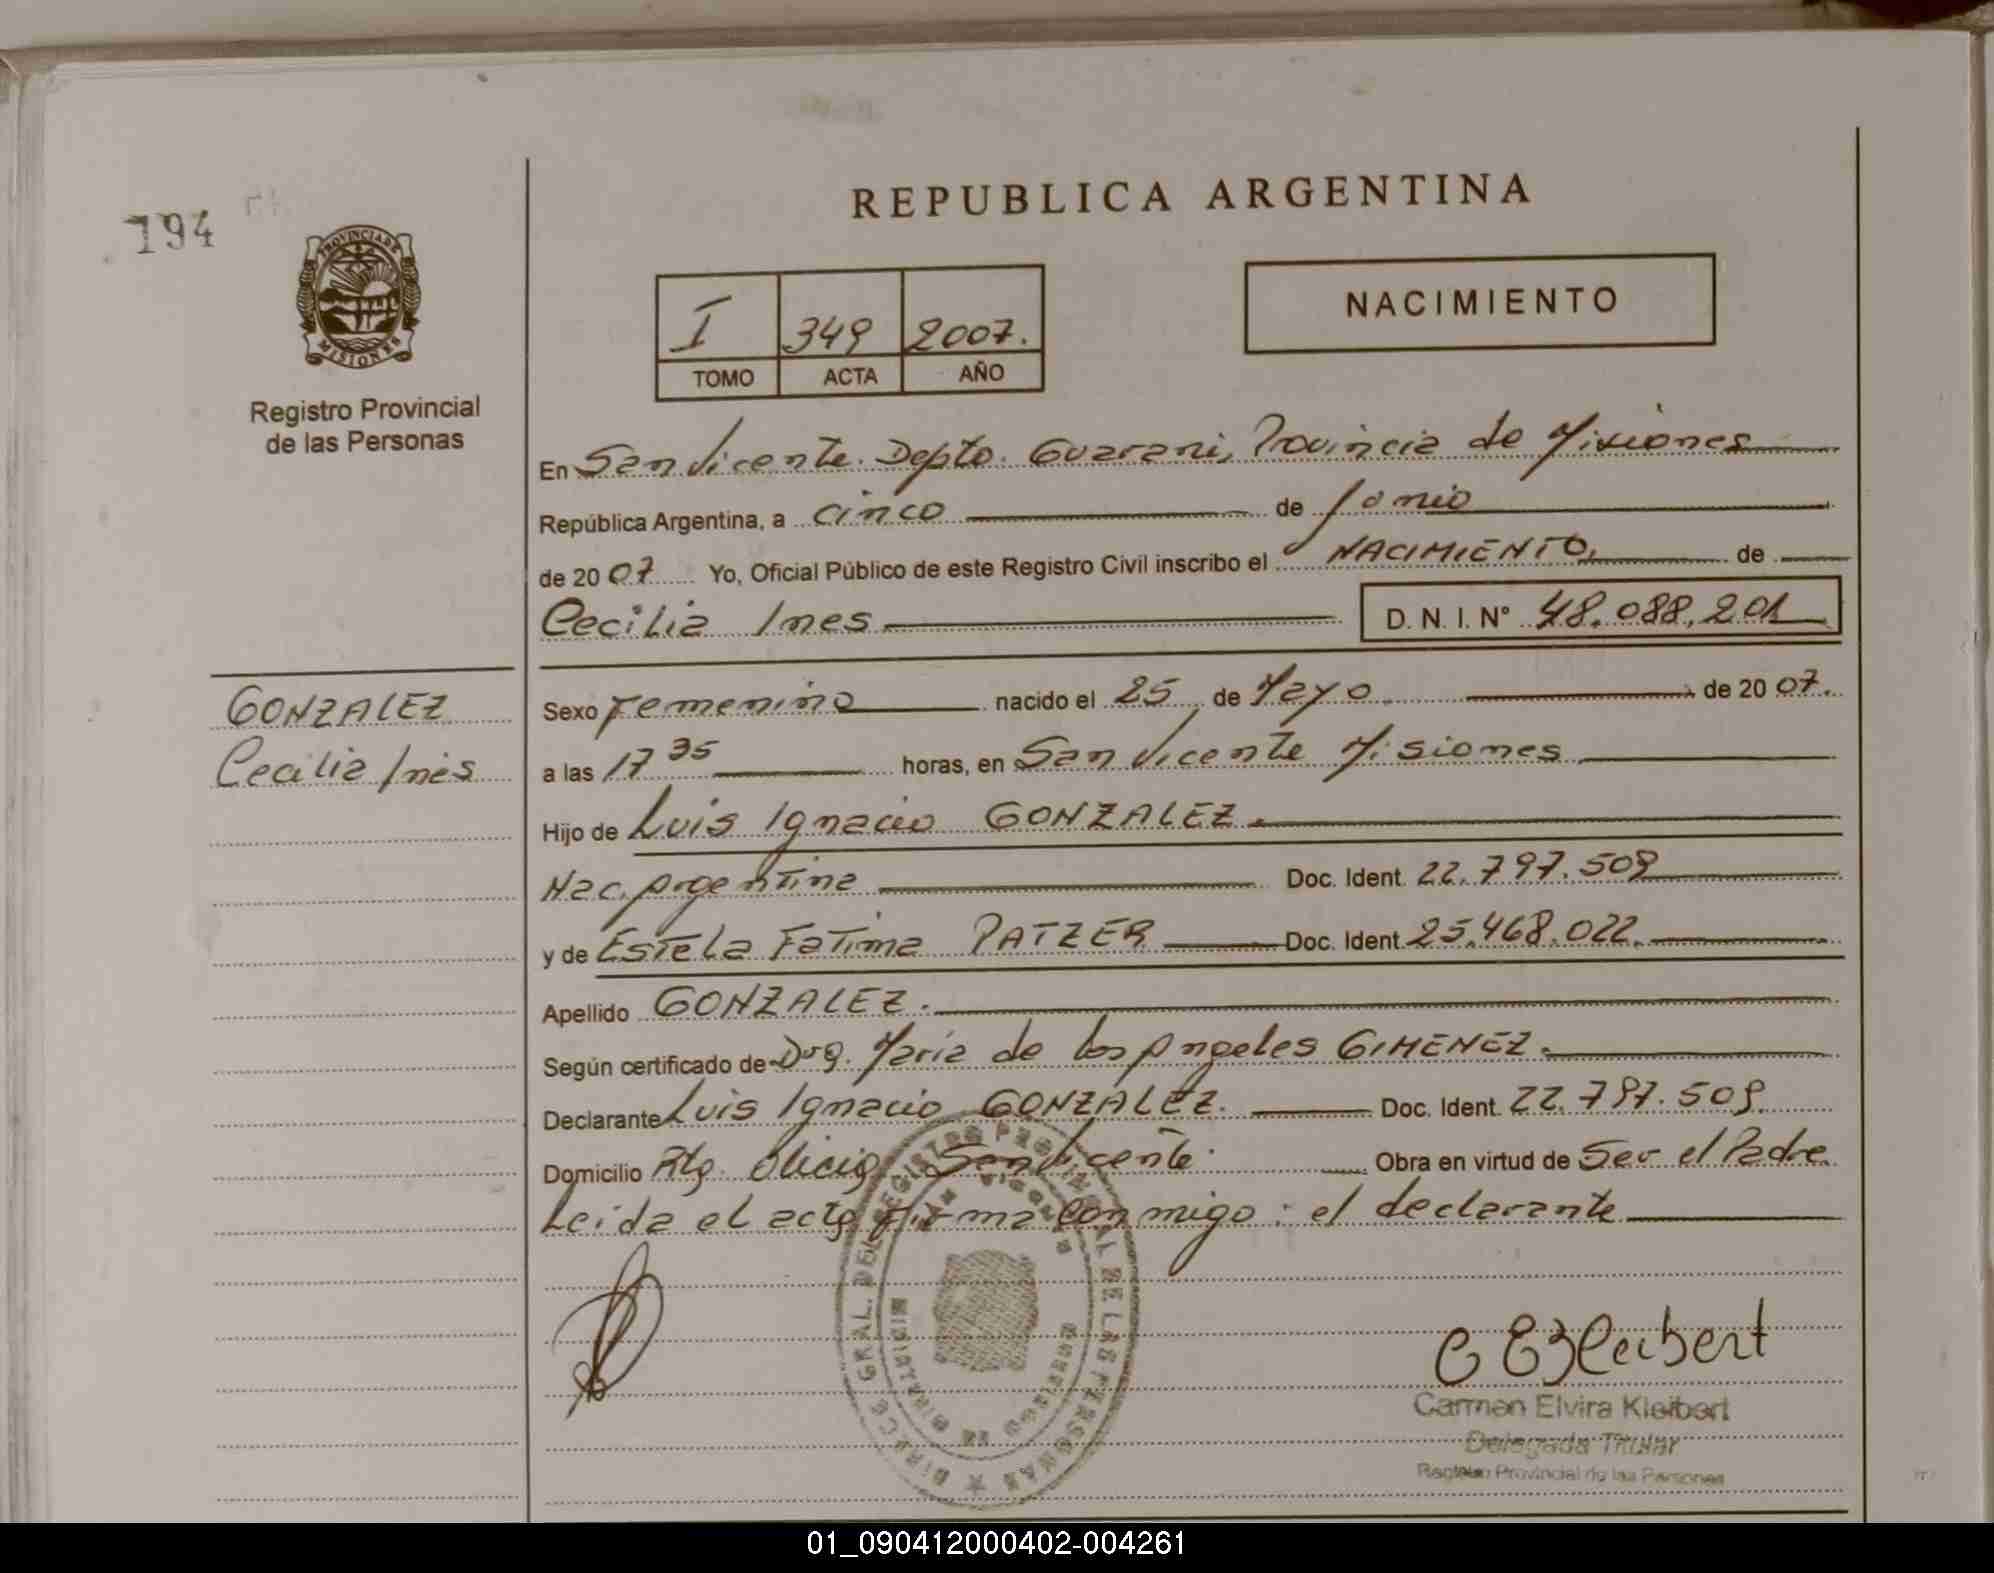 194
PROVINCIA DE
MISIONES
Registro Provincial
de las Personas
REPUBLICA ARGENTINA
NACIMIENTO
I 349 2007.
TOMO ACTA AÑO
En San Vicente. Depto. Guarani, Provincia de Misiones
República Argentina, a cinco de Junio
de 2007 Yo, Oficial Público de este Registro Civil inscribo el NACIMIENTO, de
Cecilia Ines D. N. I. N° 48.088.201
GONZALEZ
Cecilia Inés
Sexo Femenino nacido el 25 de Mayo de 2007.
a las 17 35 horas, en San Vicente Misiones
Hijo de Luis Ignacio GONZALEZ.
Nac. Argentina Doc. Ident. 22.797.509
y de Estela Fatima PATZER Doc. Ident. 25.468.022.
Apellido GONZALEZ.
Según certificado de Dra. Maria de los Angeles GIMENEZ.
Declarante Luis Ignacio GONZALEZ. Doc. Ident. 22.797.509.
Domicilio San Vicente. Obra en virtud de Ser el Padre
Leida el acta firma conmigo: el declarante
DIRECC. GRAL. DEL REGISTRO PROVINCIAL DE LAS PERSONAS
C E Kleibert
Carmen Elvira Kleibert
Delegada Titular
Registro Provincial de las Personas
01_090412000402-004261